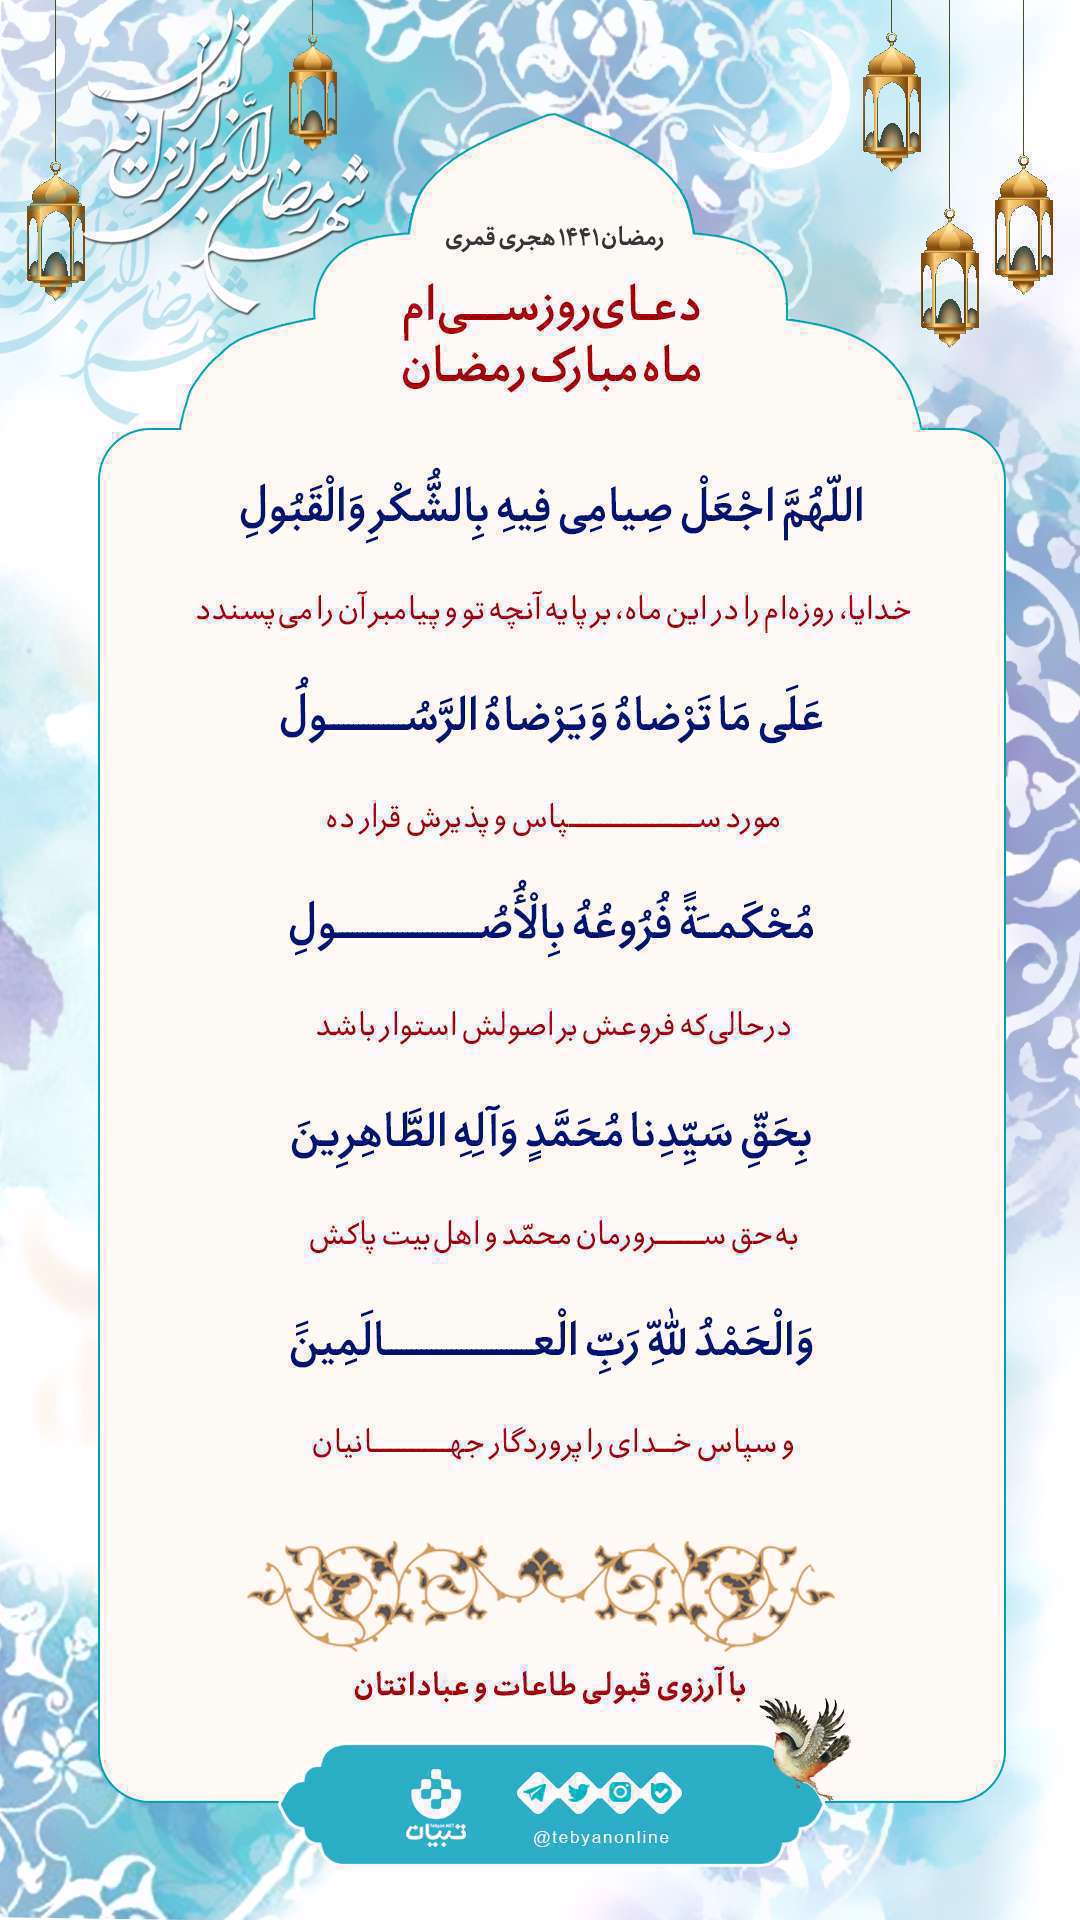 شهر رمضان الذی انزل فیه القرآن
رمضان ۱۴۴۱ هجری قمری
دعـای روز ســـی ام
مـاه مبارک رمضـان
اللّهُمَّ اجْعَلْ صِیامِی فِیهِ بِالشُّکْرِ وَالْقَبُولِ
خدایا، روزه‌ام را در این ماه، بر پایه آنچه تو و پیامبر آن را می پسندد
عَلَی مَا تَرْضاهُ وَیَرْضاهُ الرَّسُـــــولُ
مورد ســـــــــپاس و پذیرش قرار ده
مُحْکَمـَةً فُرُوعُهُ بِالْأُصُـــــــولِ
درحالی‌که فروعش بر اصولش استوار باشد
بِحَقِّ سَیِّدِنا مُحَمَّدٍ وَآلِهِ الطَّاهِرِینَ
به حق ســـرورمان محمّد و اهل بیت پاکش
وَالْحَمْدُ لِلّٰهِ رَبِّ الْعـــــــالَمِینََ
و سپاس خـدای را پروردگار جهـــــانیان
با آرزوی قبولی طاعات و عباداتتان
تبیان
@tebyanonline